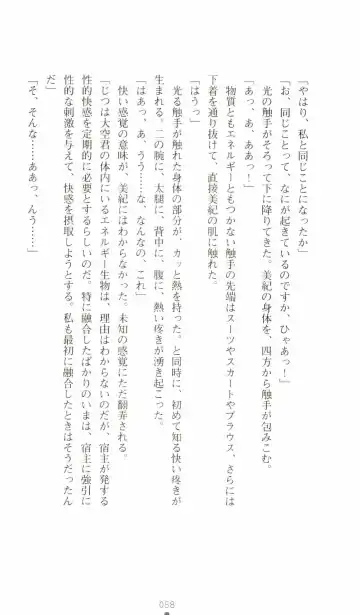 「やはり、私と同じことになったか」
「お、同じことって、なにが起きているのですか、ひゃあっ！」
光の触手がそろって下に降りてきた。美紀の身体を、四方から触手が包みこむ。
「あっ、あ、ああっ！」
物質ともエネルギーともつかない触手の先端はスーツやスカートやブラウス、さらには
下着を通り抜けて、直接美紀の肌に触れた。
「はうっ」
光る触手が触れた身体の部分が、カッと熱を持った。と同時に、初めて知る快い疼きが
生まれる。二の腕に、太腿に、背中に、腹に、熱い疼きが湧き起こった。
「はあっ、あ、うう……な、なんなの、これ」
快い感覚の意味が、美紀にはわからなかった。未知の感覚にただ翻弄される。
「じつは大空君の体内にいるエネルギー生物は、理由はわからないのだが、宿主が発する
性的快感を定期的に必要とするらしいのだ。特に融合したばかりのいまは、宿主に強引に
性的な刺激を与えて、快感を摂取しようとする。私も最初に融合したときはそうだったん
だ」
「そ、そんな……ああっ、んう……」
058